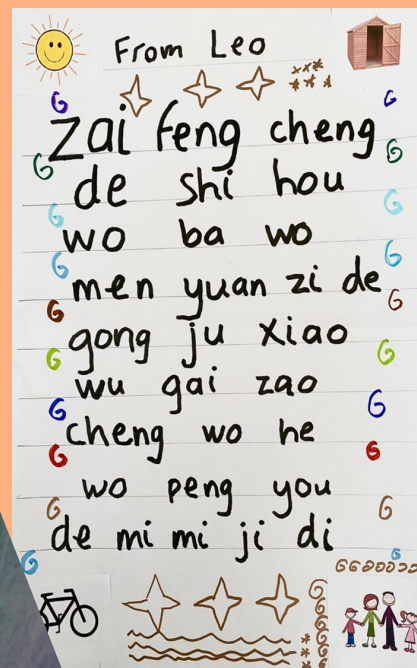 From Leo
zai feng cheng
de shi hou
wo ba wo
men yuan zi de
gong ju xiao
wu gai zao
cheng wo he
wo peng you
de mi mi ji di